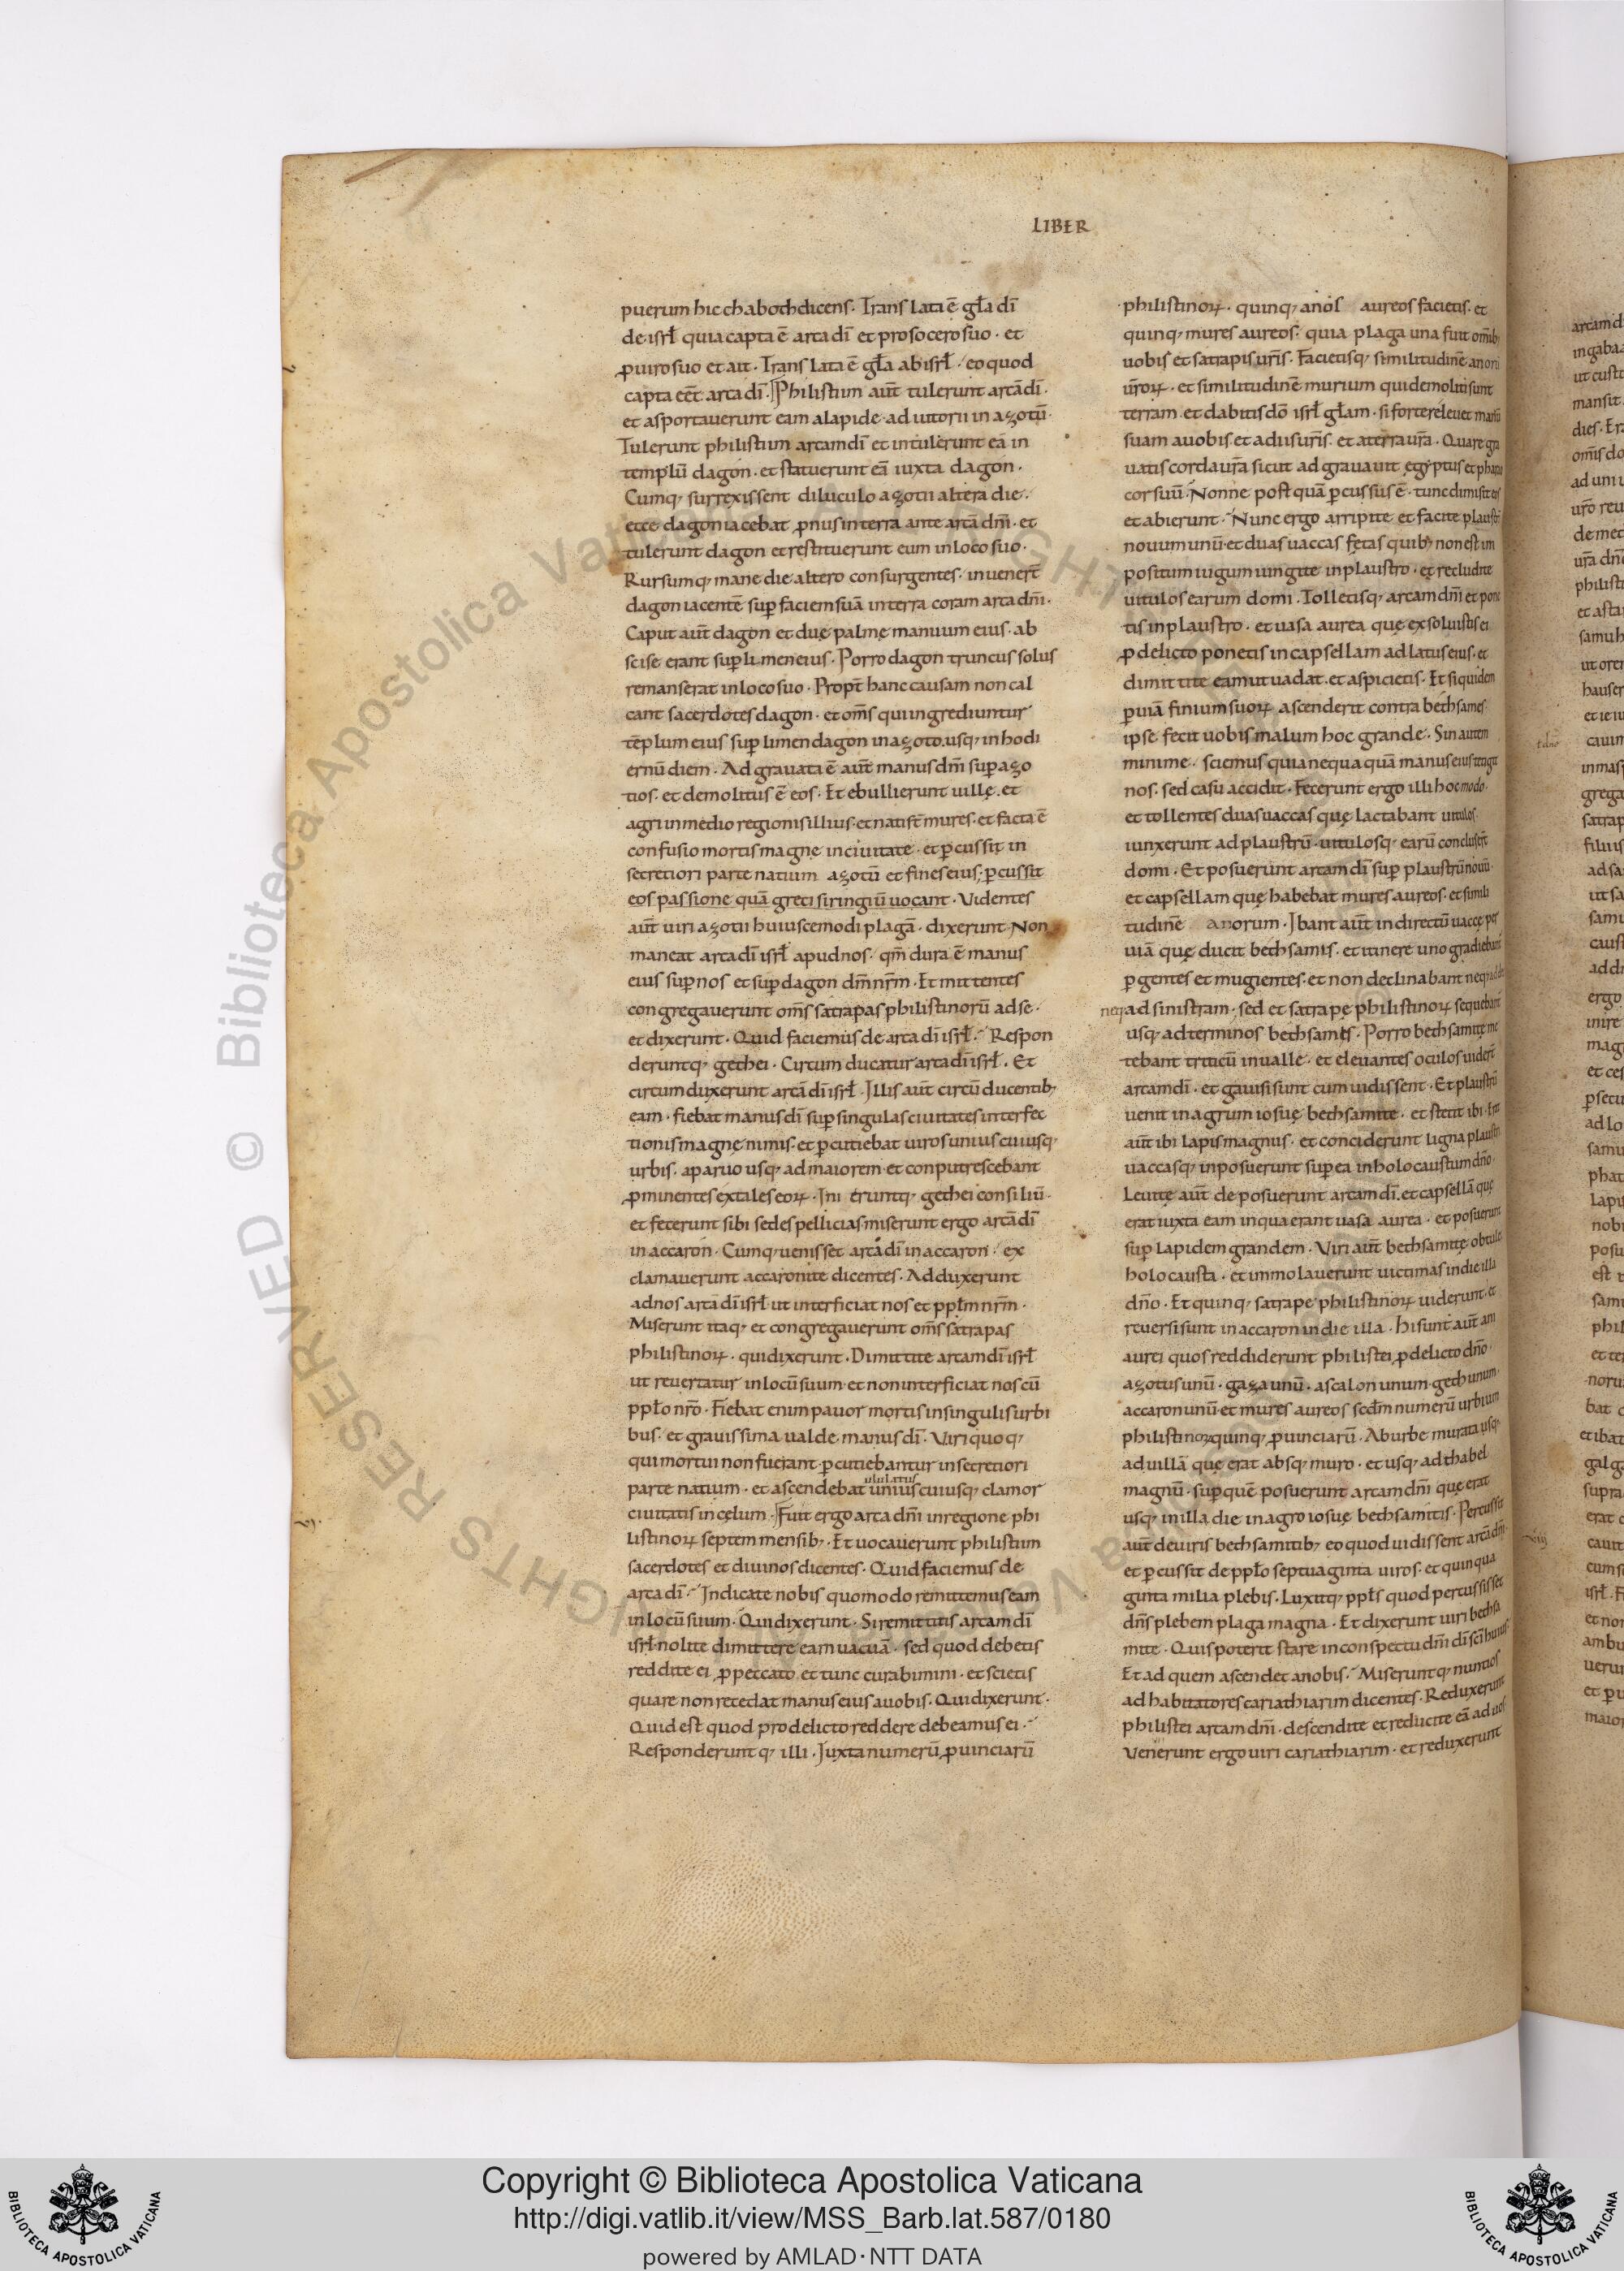 LIBER
puerum hicchabothdicens. Translata ē gła dī
de isrł quia capta ē arca dī et prosocero suo. et
ꝓuiro suo et ait. Translata ē gła abisrł. eoquod
capta eēt arca dī. Philistiim aūt tulerunt arcā dī.
et asportauerunt eam alapide adiutorii in azotū.
Tulerunt philistiim arcam dī et intulerunt eā in
templū dagon. et statuerunt eā iuxta dagon.
Cumq; surrexissent diluculo azotii altera die.
ecce dagon iacebat ꝓnus interra ante arcā dnī. et
tulerunt dagon et restituerunt eum inloco suo.
Rursumq; mane die altero consurgentes. inuenert̄
dagon iacentē sup̄ faciem suā interra coram arca dnī.
Caput aūt dagon et duę palmę manuum eius. ab
scise erant sup̄ limen eius. Porro dagon truncus solus
remanserat inloco suo. Propt̄ hanc causam non cal
cant sacerdotes dagon. et om̄s qui ingrediuntur
tēplum eius sup̄ limen dagon inazoto. usq; inhodi
ernū diem. Adgrauata ē aūt manus dnī sup̄ azo
tios. et demolitus ē eos. Et ebullierunt uillę. et
agri inmedio regionis illius. et natist̄ mures. et facta ē
confusio mortis magnę inciuitate. et ꝑcussit in
secretiori parte natium azotū et fines eius. ꝑcussit
eos passione quā greci siringiū uocant. Videntes
aūt uiri azotii huiuscemodi plagā. dixerunt Non
maneat arca dī isrł apudnos. qm̄ dura ē manus
eius sup̄ nos et sup̄ dagon dm̄ nrm̄. Et mittentes
congregauerunt om̄s satrapas philistinorū adse.
et dixerunt. Quid faciemus de arca dī isrł. Respon
deruntq; gethei. Circum ducatur arca dī isrł. Et
circumduxerunt arcā dī isrł. Illis aūt circū ducentib;
eam. fiebat manus dī sup̄ singulas ciuitates interfec
tionis magnę nimis. et ꝑcutiebat uiros unius cuiusq;
urbis. aparuo usq; ad maiorem. et conputrescebant
ꝓminentes extales eoꝝ. Ini eruntq; gethei consiliū.
et fecerunt sibi sedes pellicias. miserunt ergo arcā dī
in accaron. Cumq; uenisset arcā dī in accaron. ex
clamauerunt accaronite dicentes. Adduxerunt
adnos arcā dī isrł. ut interficiat nos et ppłm nrm̄.
Miserunt itaq; et congregauerunt om̄s satrapas
philistinoꝝ. qui dixerunt. Dimittite arcam dī isrł
ut reuertatur inlocū suum. et non interficiat nos cū
ppło nrō. Fiebat enim pauor mortis insingulis urbi
bus. et grauissima ualde. manus dī. Viri quoq;
qui mortui non fuerant. ꝑcutiebantur insecretiori
ululatus
parte natium. et ascendebat unius cuiusq; clamor
ciuitatis in cęlum. Fuit ergo arca dnī inregione phi
listinoꝝ septem mensib;. Et uocauerunt philistiim
sacerdotes et diuinos dicentes. Quid faciemus de
arca dī. Indicate nobis quomodo remittemus eam
inlocū suum. Qui dixerunt. Si remittitis arcam dī
isrł. nolite dimittere eam uacuā. sed quod debetis
reddite ei ꝓ peccato. et tunc curabimini. et scietis
quare non recedat manus eius auobis. Qui dixerunt.
Quid est quod prodelicto reddere debeamus ei.
Responderuntq; illi. Juxta numerū ꝓuinciarū
philistinoꝝ. quinq; anos aureos facietis. et
quinq; mures aureos. quia plaga una fuit om̄ib;
uobis et satrapis urīs. Facietisq; similitudinē anoꝝ
ūroꝝ. et similitudinē murium qui demoliti sunt
terram. et dabitis dō isrł głam. si forte releuet manū
suam auobis et adiis urīs. et aterra ura. Quare gra
uatis corda ura sicut adgrauauit egyptus et pharao
cor suū. Nonne postquā ꝑcussus ē. tunc dimisit eos
et abierunt. Nunc ergo arripite et facite plaustr̄
nouum unū. et duas uaccas fętas quib; non est im
positum iugum. iungite inplaustro. et recludite
uitulos earum domi. Tolletisq; arcam dnī et pone
tis inplaustro. et uasa aurea quę exsoluistis ei
ꝓ delicto ponetis in capsellam adlatus eius. et
dimittite eam ut uadat. et aspicietis. Et siquidem
ꝑuiā finium suoꝝ ascenderit contra bethsames.
ipse fecit uobis malum hoc grande. Sin autem
minime. sciemus quia nequaquā manus eius tetigit
nos. sed casu accidit. Fecerunt ergo illi hoc modo.
et tollentes duas uaccas quę lactabant uitulos.
iunxerunt ad plaustrū. uitulosq; earū conclusert̄
domi. Et posuerunt arcam dī sup̄ plaustrū nouū.
et capsellam quę habebat mures aureos. et simili
tudinē anorum. Ibant aūt indirectū uaccę per
uiā quę ducit bethsamis. et itinere uno gradiebant̄
ꝑgentes et mugientes. et non declinabant neq; ad de
neq; ad sinistram. sed et satrapę philistinoꝝ sequebant̄
usq; ad terminos bethsames. Porro bethsamitę me
tebant triticū inualle. et eleuantes oculos uidert̄
arcam dī. et gauisi sunt cum uidissent. Et plaustrū
uenit inagrum iosuę bethsamite. et stetit ibi. Erat
aūt ibi lapis magnus. et conciderunt ligna plaustri
uaccasq; inposuerunt sup̄ ea inholocaustum dnō.
Leuitę aūt deposuerunt arcam dī. et capsellā quę
erat iuxta eam inqua erant uasa aurea. et posuerunt
sup̄ lapidem grandem. Viri aūt bethsamitę obtule
holocausta. et immolauerunt uictimas indie illa
dnō. Et quinq; satrape philistinoꝝ uiderunt. et
reuersi sunt inaccaron indie illa. Hi sunt aūt ani
aurei quos reddiderunt philistei ꝓdelicto dnō.
azotus unū. gaza unū. ascalon unum. geth unum.
accaron unū. et mures aureos scdm̄ numerū urbium
philistinoꝝ quinq; ꝓuinciarū. Aburbe murata usq;
ad uillā quę erat absq; muro. et usq; ad thabel
magnū. sup̄ quē posuerunt arcam dnī quę erat
usq; inilla die inagro iosuę bethsamitis. Percussit
aūt deuiris bethsamitib; eo quod uidissent arcā dnī.
et ꝑcussit de ppło septuaginta uiros. et quinqua
ginta milia plebis. Luxitq; ppłs quod percussisset
dnś plebem plaga magna. Et dixerunt uiri bethsa
mite. Quis poterit stare inconspectu dnī dī scī huius.
Et ad quem ascendet anobis. Miseruntq; nuntios
ad habitatores cariathiarim dicentes. Reduxerunt
philistei arcam dnī. descendite et reducite eā ad uos
Venerunt ergo uiri cariathiarim. et reduxerunt
Copyright © Biblioteca Apostolica Vaticana
http://digi.vatlib.it/view/MSS_Barb.lat.587/0180
powered by AMLAD·NTT DATA
BIBLIOTECA APOSTOLICA VATICANA
BIBLIOTECA APOSTOLICA VATICANA